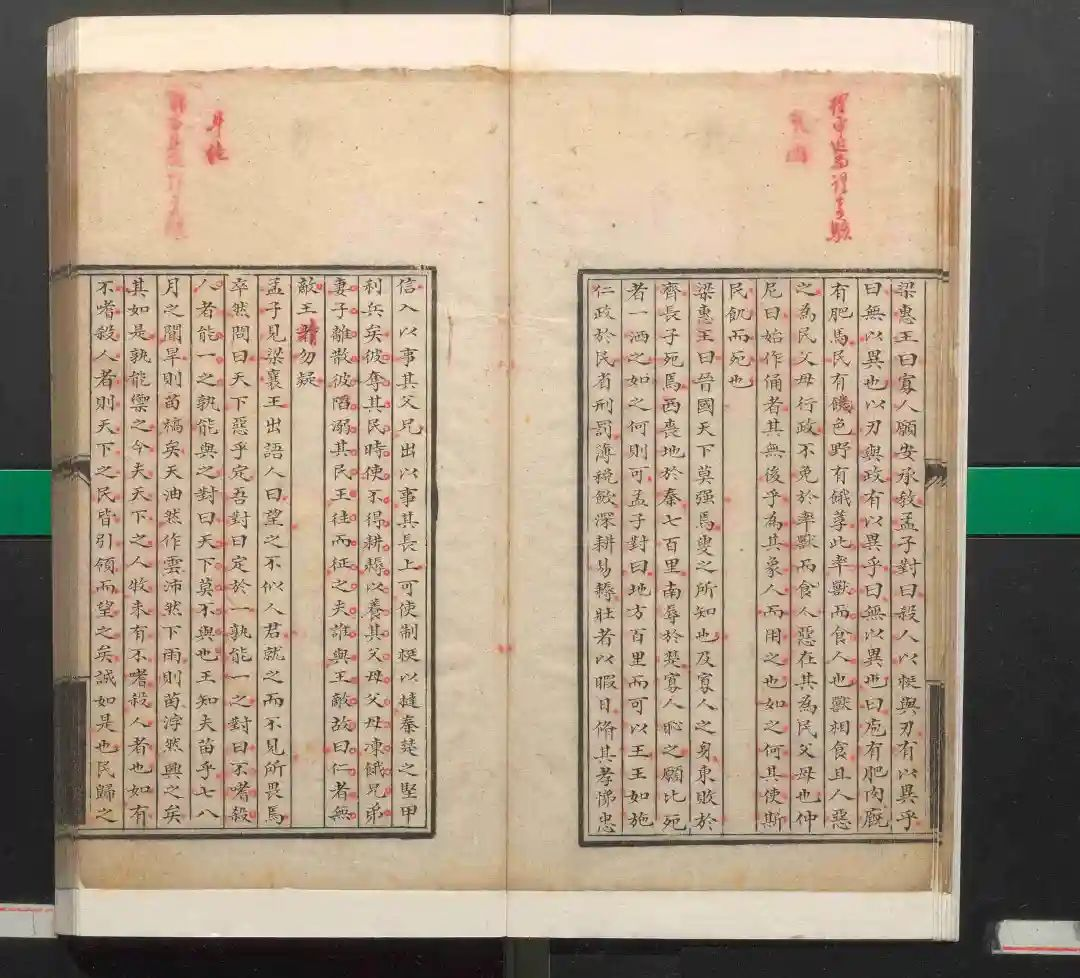 梁惠王曰寡人願安承教孟子對曰殺人以梃與刃有以異乎
曰無以異也以刃與政有以異乎曰無以異也曰庖有肥肉廐
有肥馬民有饑色野有餓莩此率獸而食人也獸相食且人惡
之為民父母行政不免於率獸而食人惡在其為民父母也仲
尼曰始作俑者其無後乎為其象人而用之也如之何其使斯
民飢而死也
梁惠王曰晉國天下莫强焉叟之所知也及寡人之身東敗於
齊長子死焉西喪地於秦七百里南辱於楚寡人恥之願比死
者一洒之如之何則可孟子對曰地方百里而可以王王如施
仁政於民省刑罰薄稅斂深耕易耨壯者以暇日脩其孝悌忠
信入以事其父兄出以事其長上可使制梃以撻秦楚之堅甲
利兵矣彼奪其民時使不得耕耨以養其父母父母凍餓兄弟
妻子離散彼陷溺其民王往而征之夫誰與王敵故曰仁者無
敵王請勿疑
孟子見梁襄王出語人曰望之不似人君就之而不見所畏焉
卒然問曰天下惡乎定吾對曰定於一孰能一之對曰不嗜殺
人者能一之孰能與之對曰天下莫不與也王知夫苗乎七八
月之間旱則苗槁矣天油然作雲沛然下雨則苗浡然興之矣
其如是孰能禦之今夫天下之人牧未有不嗜殺人者也如有
不嗜殺人者則天下之民皆引領而望之矣誠如是也民歸之